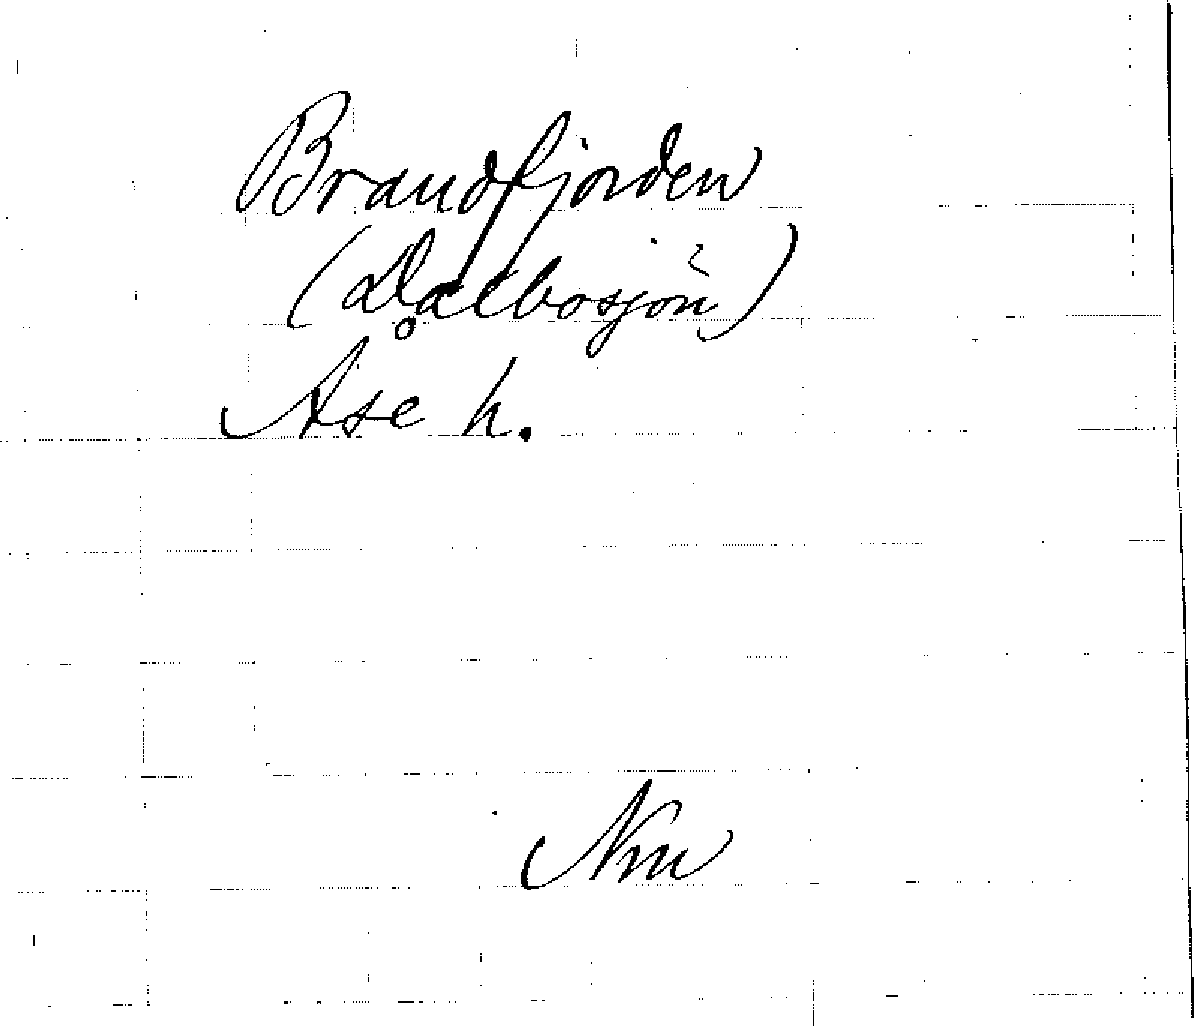 Brandfjorden
(Dalbosjön)
Åse h.
Nm